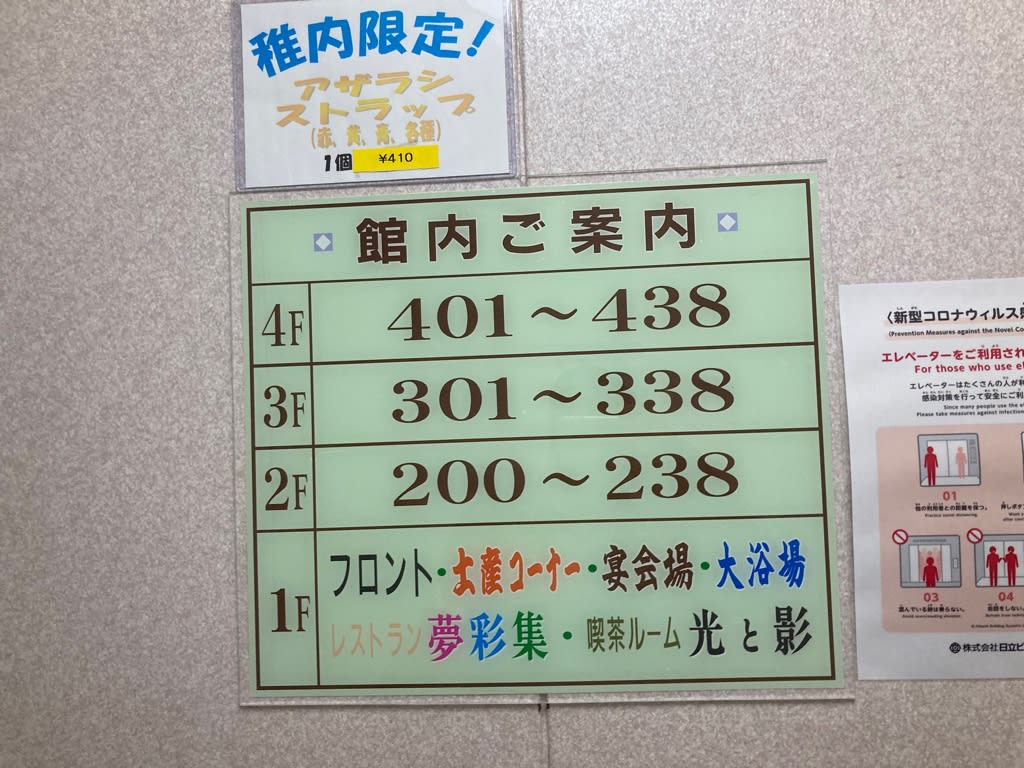 稚内限定!
アザラシ
ストラップ
(赤、黄、青、各種)
1個 ¥410
館内ご案内
4F 401～438
3F 301～338
2F 200～238
1F フロント・土産コーナー・宴会場・大浴場
レストラン夢彩集・喫茶ルーム光と影
〈新型コロナウィルス
(Prevention Measures against the Novel Co
エレベーターをご利用され
For those who use el
エレベーターはたくさんの人が
感染対策を行って安全にご利
Since many people use the e
Please take measures against infection
01
他の利用者との距離を保つ。
Practice social distancing.
押しボタ
03
混んでいる時は乗らない。
Avoid overcrowding elevator.
04
会話をしない。
株式会社日立ビ